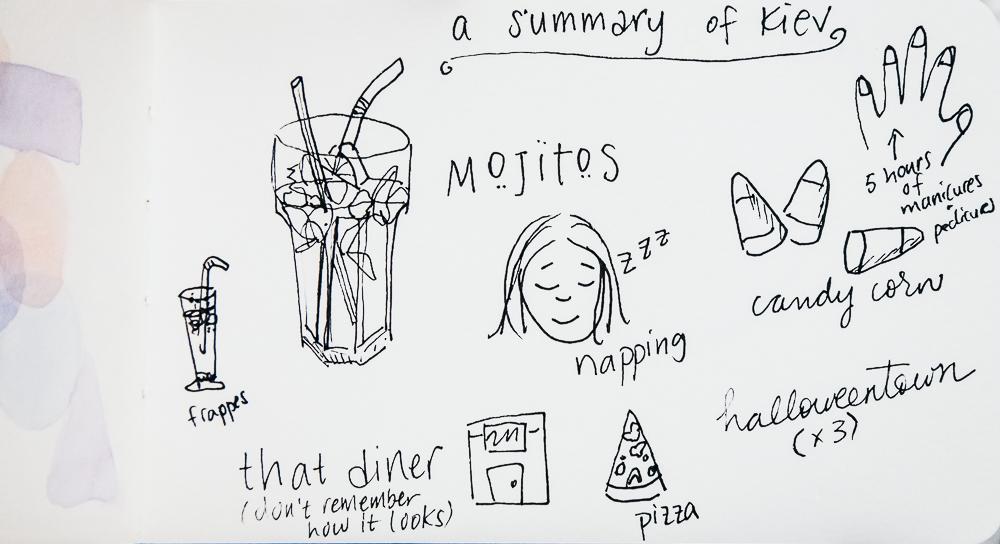 a summary of Kiev
MOJITOS
5 hours
of
manicures
pedicures
z z z
candy corn
napping
frappes
halloweentown
(x3)
that diner
(don't remember
how it looks)
pizza